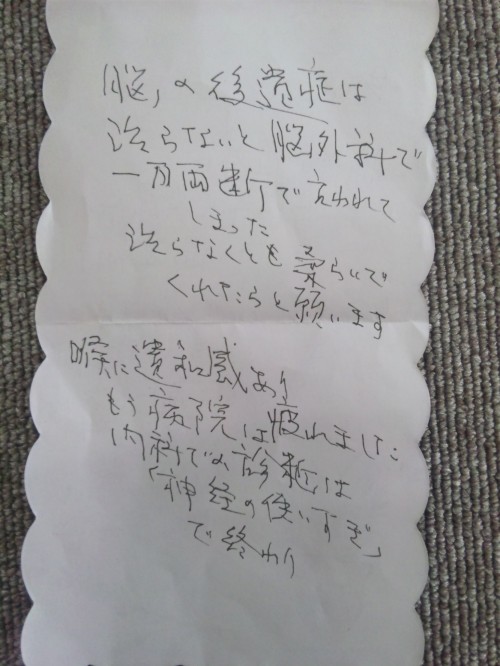 脳、の後遺症は
治らないと脳外科で
一刀両断で言われて
しまった
治らなくとも柔らいで
くれたらと願います
喉に遺和感あり
もう病院は疲れました
内科での診断は
「神経の使いすぎ」
で終わり